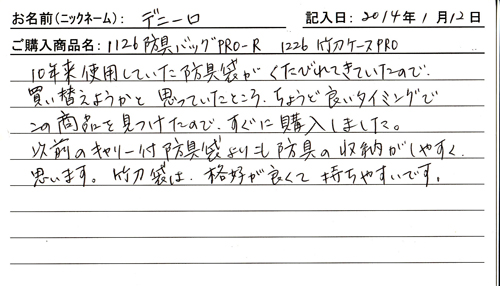 お名前(ニックネーム): デニーロ 記入日: 2014年1月12日
ご購入商品名: 1126 防具バッグPRO-R 1226 竹刀ケースPRO
10年来使用していた防具袋がくたびれてきていたので、
買い替えようかと思っていたところ、ちょうど良いタイミングで
この商品を見つけたので、すぐに購入しました。
以前のキャリー付防具袋よりも防具の収納がしやすく
思います。竹刀袋は、格好が良くて持ちやすいです。